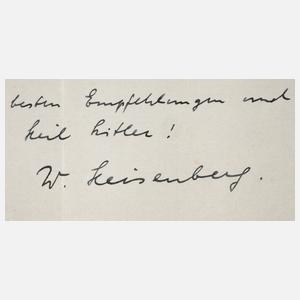 besten Empfehlungen und
Heil Hitler!
W. Heisenberg.